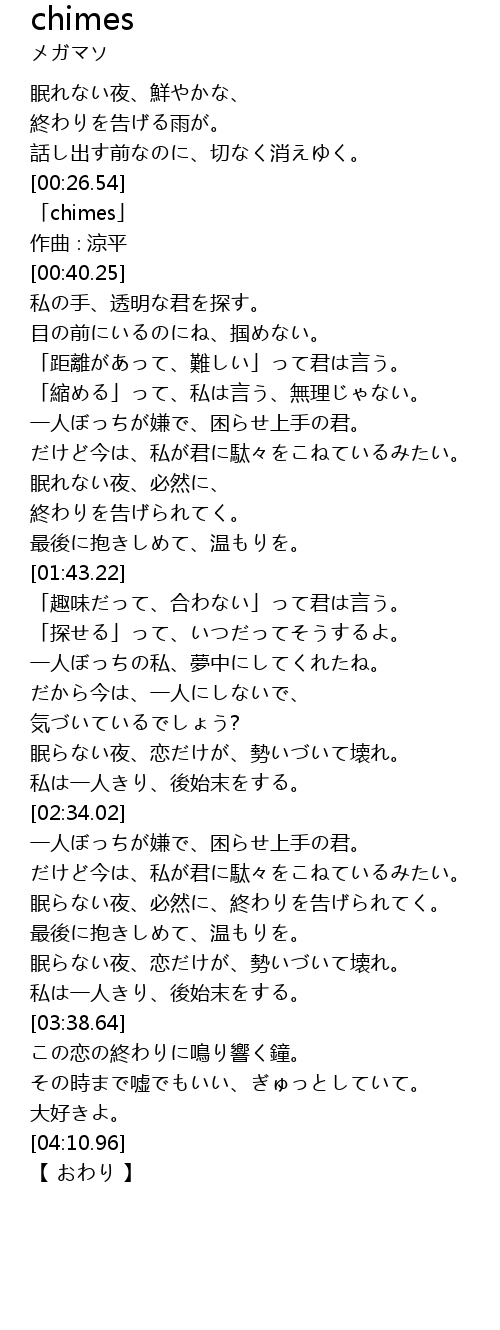 chimes
メガマソ
眠れない夜、鮮やかな、
終わりを告げる雨が。
話し出す前なのに、切なく消えゆく。
[00:26.54]
「chimes」
作曲 : 涼平
[00:40.25]
私の手、透明な君を探す。
目の前にいるのにね、掴めない。
「距離があって、難しい」って君は言う。
「縮める」って、私は言う、無理じゃない。
一人ぼっちが嫌で、困らせ上手の君。
だけど今は、私が君に駄々をこねているみたい。
眠れない夜、必然に、
終わりを告げられてく。
最後に抱きしめて、温もりを。
[01:43.22]
「趣味だって、合わない」って君は言う。
「探せる」って、いつだってそうするよ。
一人ぼっちの私、夢中にしてくれたね。
だから今は、一人にしないで、
気づいているでしょう?
眠らない夜、恋だけが、勢いづいて壊れ。
私は一人きり、後始末をする。
[02:34.02]
一人ぼっちが嫌で、困らせ上手の君。
だけど今は、私が君に駄々をこねているみたい。
眠らない夜、必然に、終わりを告げられてく。
最後に抱きしめて、温もりを。
眠らない夜、恋だけが、勢いづいて壊れ。
私は一人きり、後始末をする。
[03:38.64]
この恋の終わりに鳴り響く鐘。
その時まで嘘でもいい、ぎゅっとしていて。
大好きよ。
[04:10.96]
【 おわり 】